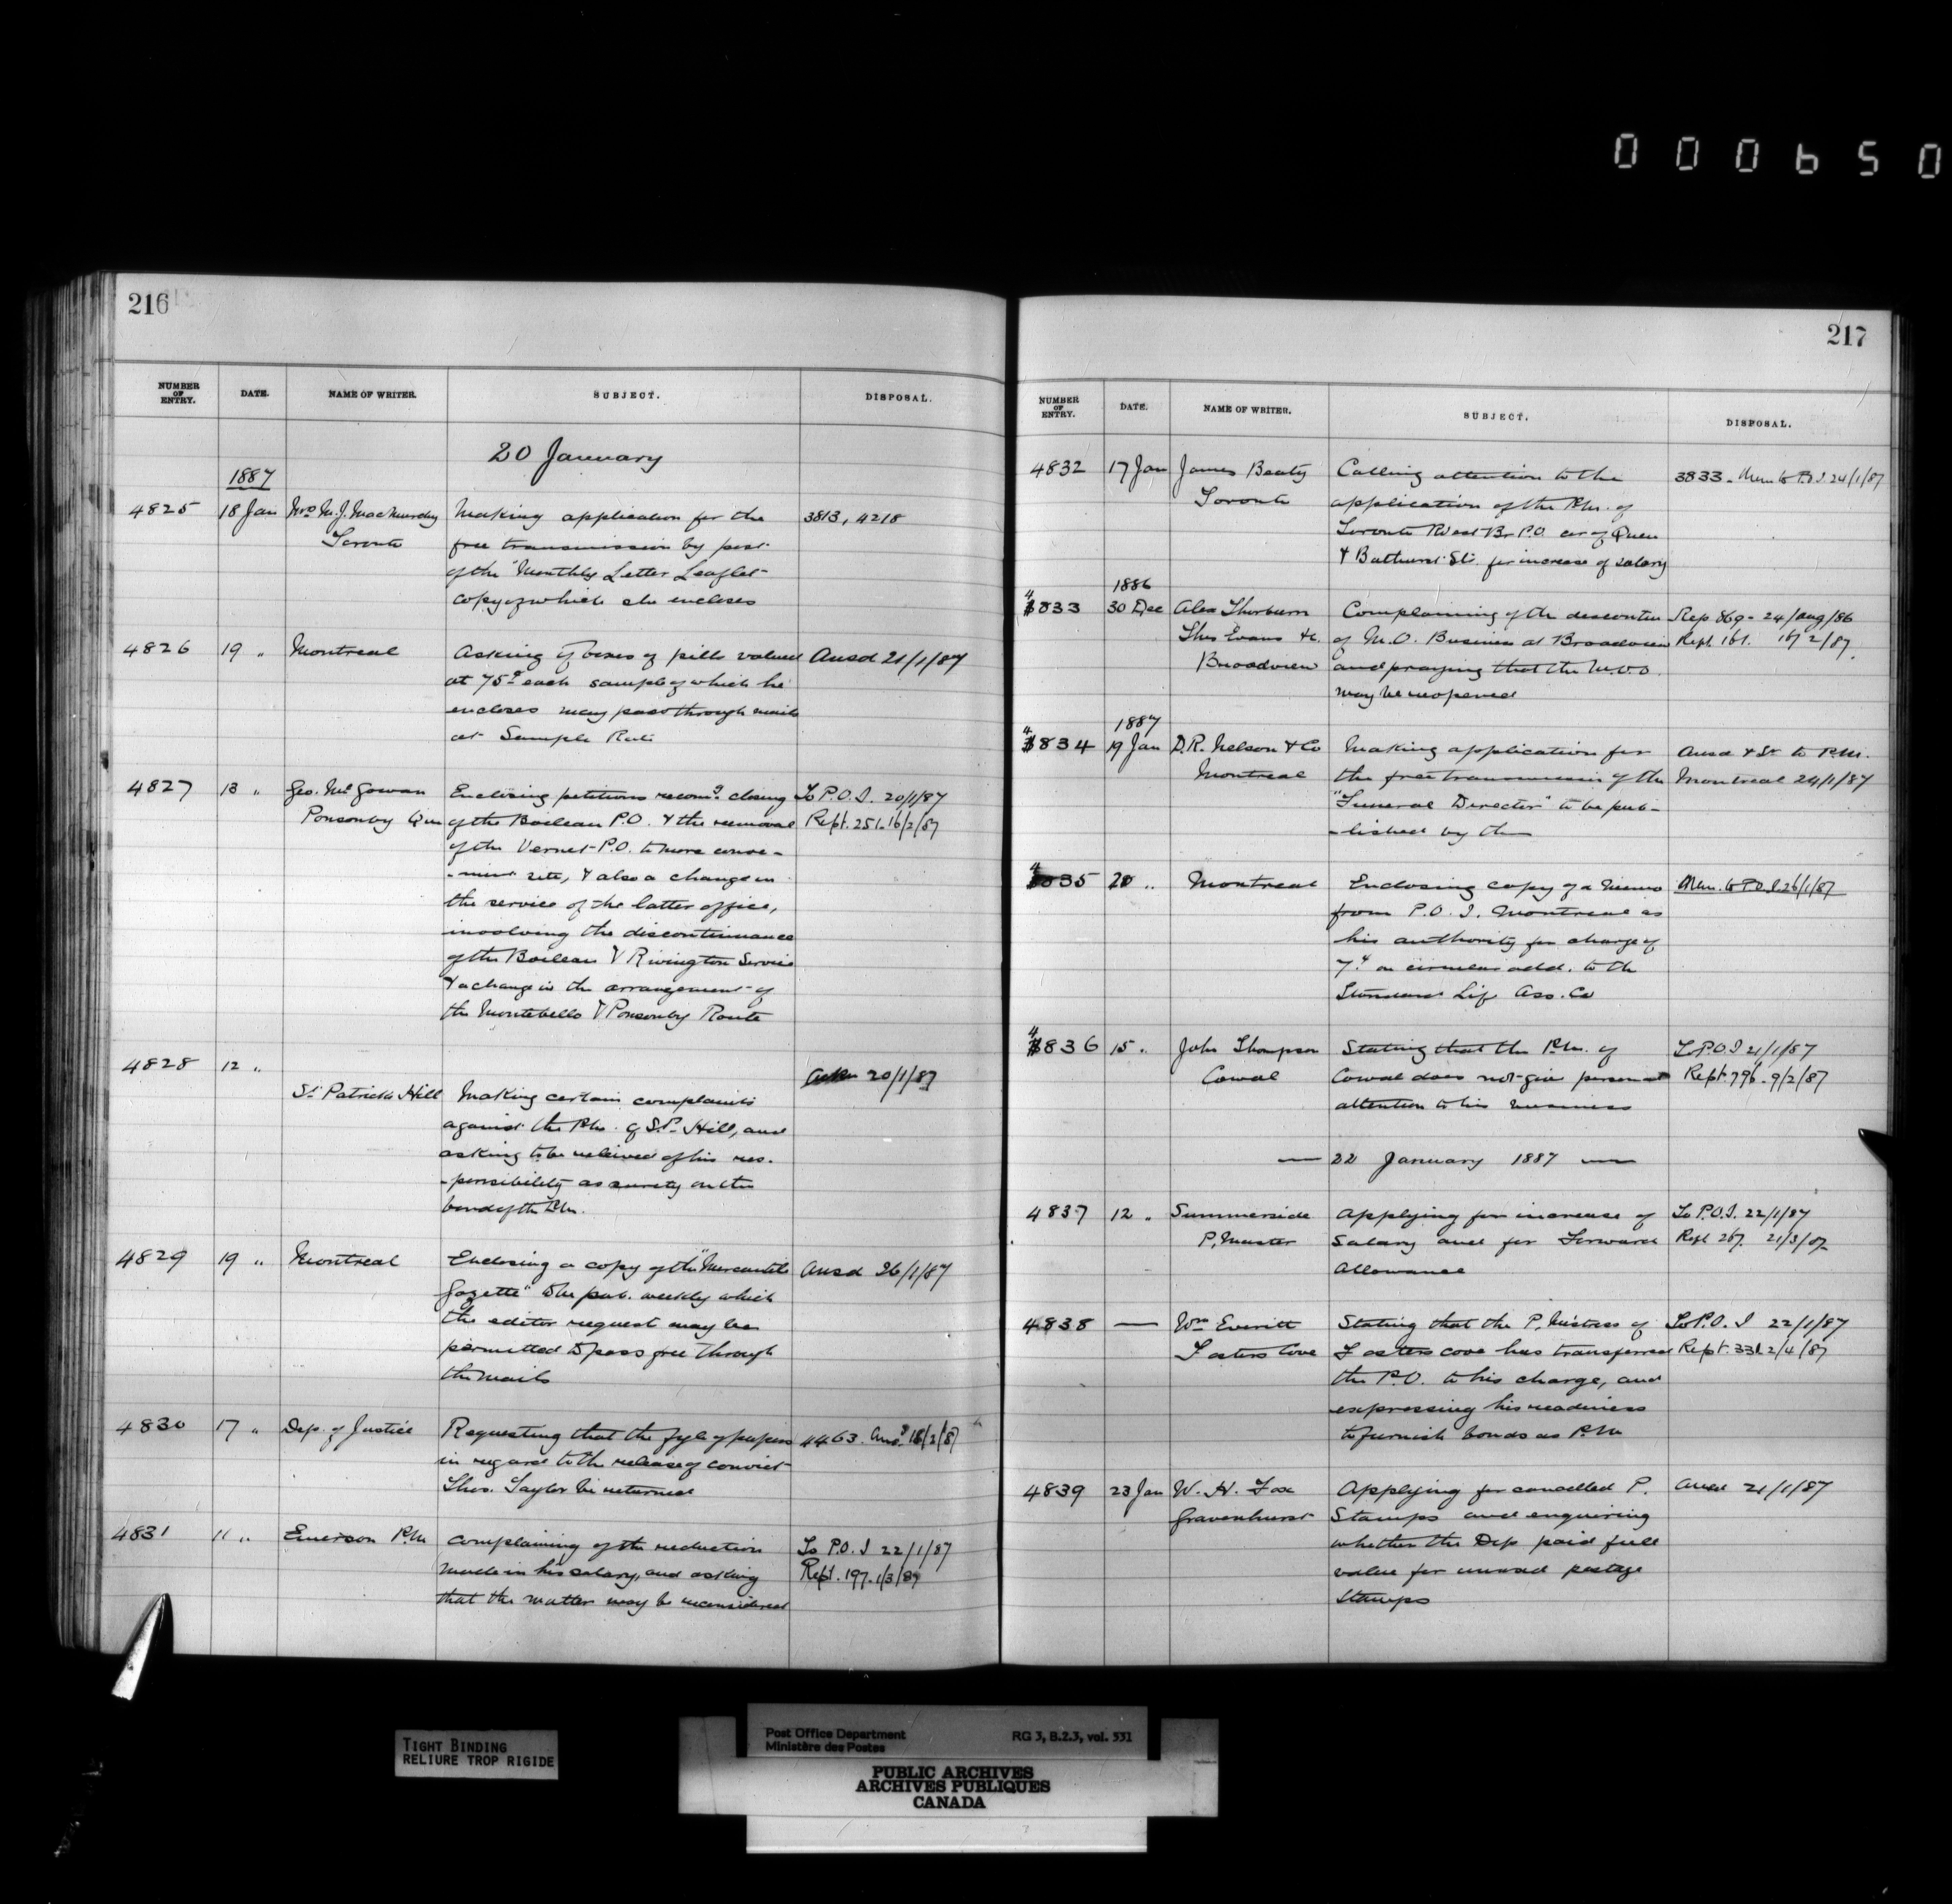 000650
216
NUMBER OF ENTRY. DATE. NAME OF WRITER. SUBJECT. DISPOSAL.
20 January
1887
4825 18 Jan Mrs M. J. MacMurchy Making application for the 3813, 4218
Toronto free transmission by post
of the "Monthly Letter Leaflet
copy of which she encloses
4826 19 " Montreal Asking if boxes of pills valued Ansd 21/1/87
at 75c each sample of which he
encloses may pass through mails
at Sample Rate
4827 13 " Geo. McGowan Enclosing petitions recomg closing To P.O.I. 20/1/87
Ponsonby Que of the Boileau P.O. & the removal Rept. 251. 16/2/87
of the Vernet P.O. to more conve-
-nient site, & also a change in
the service of the latter office,
involving the discontinuance
of the Boileau & Rivington Service
& a change in the arrangement of
the Montebello & Ponsonby Route
4828 12 " 20/1/87
St Patricks Hill Making certain complaints
against the P.M. of St P. Hill, and
asking to be relieved of his res-
-ponsibility as surety on the
bond of the P.M.
4829 19 " Montreal Enclosing a copy of the "Mercantile Ansd 26/1/87
Gazette" to be pub. weekly which
the editor request may be
permitted to pass free through
the mails
4830 17 " Dep. of Justice Requesting that the fyle of papers 4463. Ansd 18/2/87
in regard to the release of convict
Thos. Taylor be returned
4831 11 " Emerson P.M. Complaining of the reduction To P.O.I 22/1/87
made in his salary, and asking Rept. 197. 1/3/87
that the matter may be reconsidered
217
NUMBER OF ENTRY. DATE. NAME OF WRITER. SUBJECT. DISPOSAL.
4832 17 Jan James Beaty Calling attention to the 3833. Mem to P.O.I. 24/1/87
Toronto application of the P.M. of
Toronto West Br P.O. cor of Queen
& Bathurst Sts. for increase of salary
1886
4833 30 Dec Alex Thorburn Complaining of the discontce Rep 869 - 24/Aug/86
Thos Evans &c. of M.O. Business at Broadview Rept 161. 16/2/87
Broadview and praying that the M.O.O
may be reopened
1887
4834 19 Jan D.R. Nelson & Co Making application for Ansd & to P.M.
Montreal the free transmission of the Montreal 24/1/87
"Funeral Director" to be pub-
-lished by them
4835 20 " Montreal Enclosing copy of a memo Mem. to P.O.I. 26/1/87
from P.O.I. Montreal as
his authority for charge of
7c on circulars add. to the
Standard Life Ass. Co
4836 15 " John Thompson Stating that the P.M. of To P.O.I 21/1/87
Cowal Cowal does not give personal Rept. 796. 9/2/87
attention to his business
— 22 January 1887 —
4837 12 " Summerside Applying for increase of To P.O.I. 22/1/87
P. Master Salary and for Forward Rept 267. 21/3/87
Allowance
4838 — Wm Everitt Stating that the P. Mistress of To P.O.I 22/1/87
Fosters Cove Fosters cove has transferred Rept. 331. 2/4/87
the P.O. to his charge, and
expressing his readiness
to furnish bonds as P.M.
4839 23 Jan W. H. Fox Applying for cancelled P. Ansd 21/1/87
Gravenhurst Stamps and enquiring
whether the Dep paid full
value for unused postage
Stamps
TIGHT BINDING
RELIURE TROP RIGIDE
Post Office Department RG 3, B.2.3, vol. 531
Ministère des Postes
PUBLIC ARCHIVES
ARCHIVES PUBLIQUES
CANADA